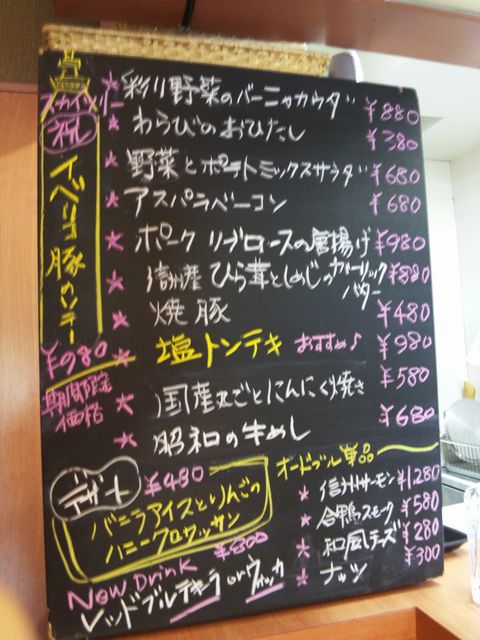 スカイツリー
祝
イベリコ豚のソテー
¥980
期間限定
価格
★ 彩り野菜のバーニャカウダ ¥880
★ わらびのおひたし ¥380
★ 野菜とポテトミックスサラダ ¥680
★ アスパラベーコン ¥680
★ ポーク リブロースの唐揚げ ¥980
★ 信州産 ひら茸としめじのガーリックバター ¥880
★ 焼豚 ¥480
塩トンテキ おすすめ♪ ¥980
★ 国産丸ごとにんにく焼き ¥580
★ 昭和の牛めし ¥680
デザート ¥480
バニラアイスとりんごの
ハニークロワッサン
オードブル単品
★ 信州サーモン ¥1280
★ 合鴨スモーク ¥580
★ 和風チーズ ¥280
★ ナッツ ¥300
New Drink ¥800
レッドブルテキーラ or ウォッカ